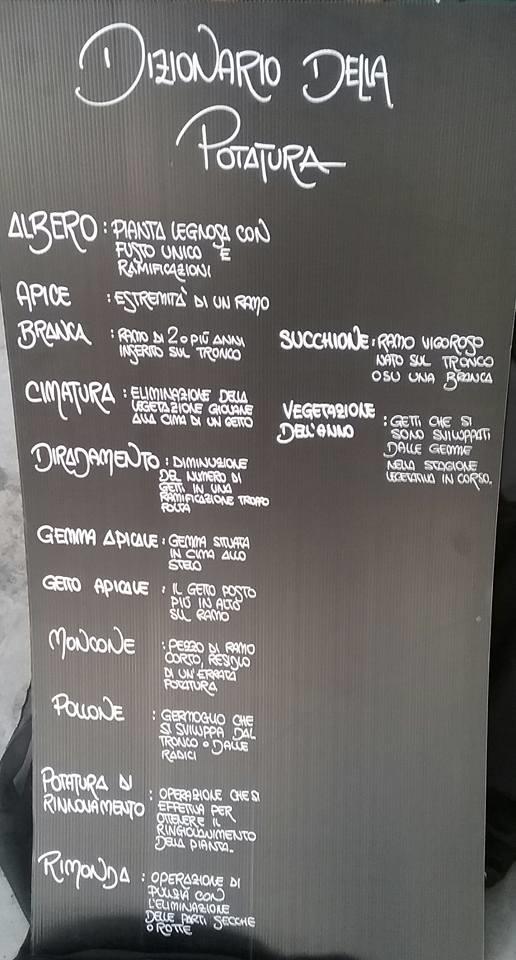 DIZIONARIO DELLA
POTATURA
ALBERO : PIANTA LEGNOSA CON
FUSTO UNICO E
RAMIFICAZIONI
APICE : ESTREMITÀ DI UN RAMO
BRANCA : RAMO DI 2 O PIÙ ANNI
INSERITO SUL TRONCO
CIMATURA : ELIMINAZIONE DELLA
VEGETAZIONE GIOVANE
ALLA CIMA DI UN GETTO
DIRADAMENTO : DIMINUZIONE
DEL NUMERO DI
GETTI IN UNA
RAMIFICAZIONE TROPPO
FOLTA
GEMMA APICALE : GEMMA SITUATA
IN CIMA ALLO
STELO
GETTO APICALE : IL GETTO POSTO
PIÙ IN ALTO
SUL RAMO
MONCONE : PEZZO DI RAMO
CORTO, RESIDUO
DI UN'ERRATA
POTATURA
POLLONE : GERMOGLIO CHE
SI SVILUPPA DAL
TRONCO O DALLE
RADICI
POTATURA DI
RINNOVAMENTO : OPERAZIONE CHE SI
EFFETTUA PER
OTTENERE IL
RINGIOVANIMENTO
DELLA PIANTA.
RIMONDA : OPERAZIONE DI
PULIZIA CON
L'ELIMINAZIONE
DELLE PARTI SECCHE
O ROTTE
SUCCHIONE : RAMO VIGOROSO
NATO SUL TRONCO
O SU UNA BRANCA
VEGETAZIONE
DELL'ANNO : GETTI CHE SI
SONO SVILUPPATI
DALLE GEMME
NELLA STAGIONE
VEGETATIVA IN CORSO.